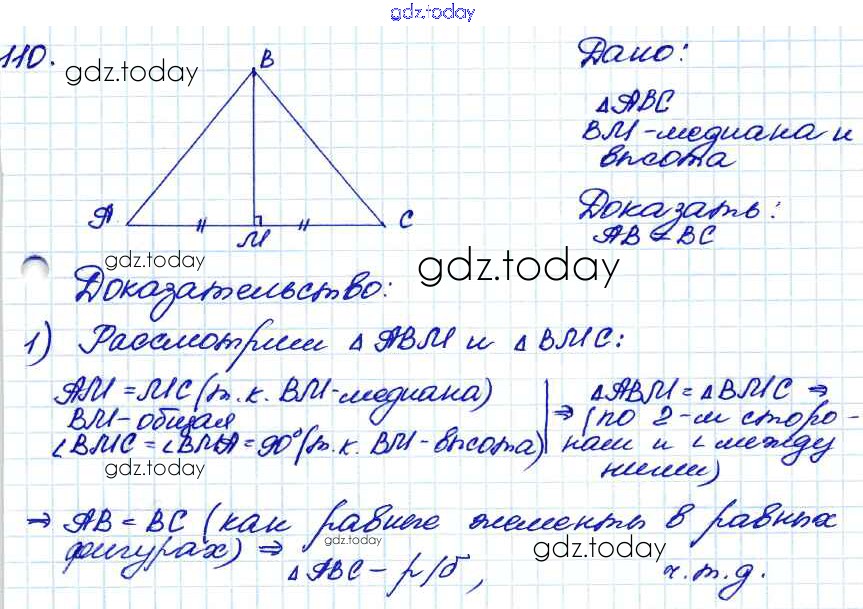 gdz.today
110.
gdz.today
B
A
M
C
Дано:
△ABC
BM-медиана и
высота
Доказать:
AB = BC
gdz.today
gdz.today
Доказательство:
1) Рассмотрим △ABM и △BMC:
AM = MC (т.к. BM-медиана)
BM-общая
∠BMC = ∠BMA = 90° (т.к. BM-высота)
gdz.today
△ABM = △BMC ⇒
⇒ (по 2-м сторо-
нам и ∠ между
ними)
⇒ AB = BC (как равные элементы в равных
фигурах) ⇒
gdz.today
gdz.today
△ABC - р/б,
ч.т.д.